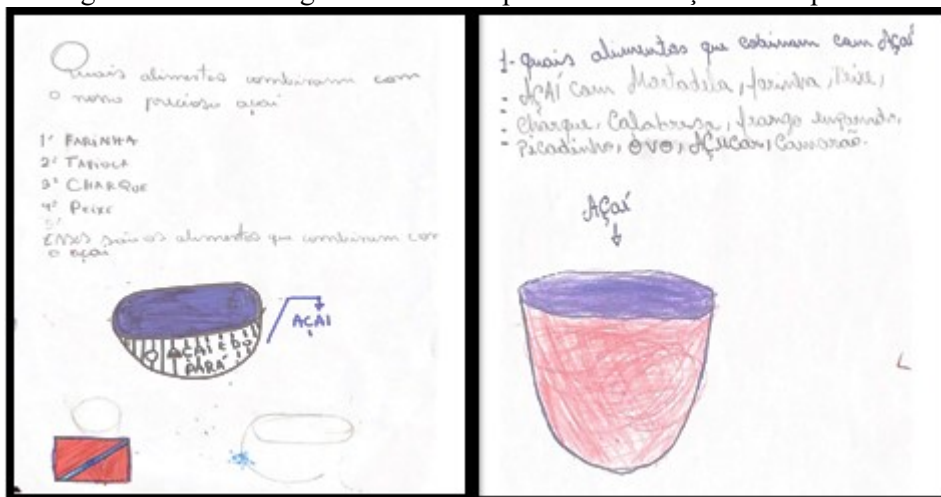 Quais alimentos combinam com
o nosso precioso açaí
1º FARINHA
2º TAPIOCA
3º CHARQUE
4º PEIXE
5º
ESSES são os alimentos que combinam com
o açaí
AÇAI
O AÇAI É DO
PARÁ
1- Quais alimentos que cobinam com Açaí
AÇAÍ com Mortadela, farinha, Peixe,
Charque, Calabresa, frango empanado,
Picadinho, OVO, AÇUCAR, Camarão.
Açaí